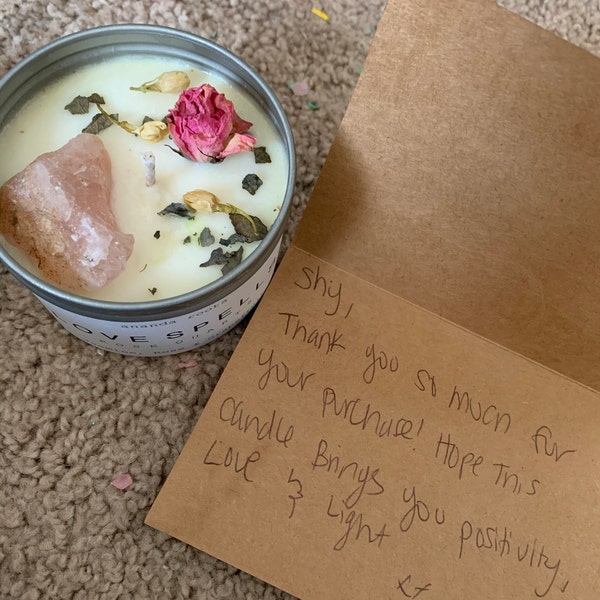 ananda cooks
LOVE SPELL
ROSE QUARTZ
Shy,
Thank you so much for
your purchase! Hope This
candle Brings you positivity,
Love & Light
xx